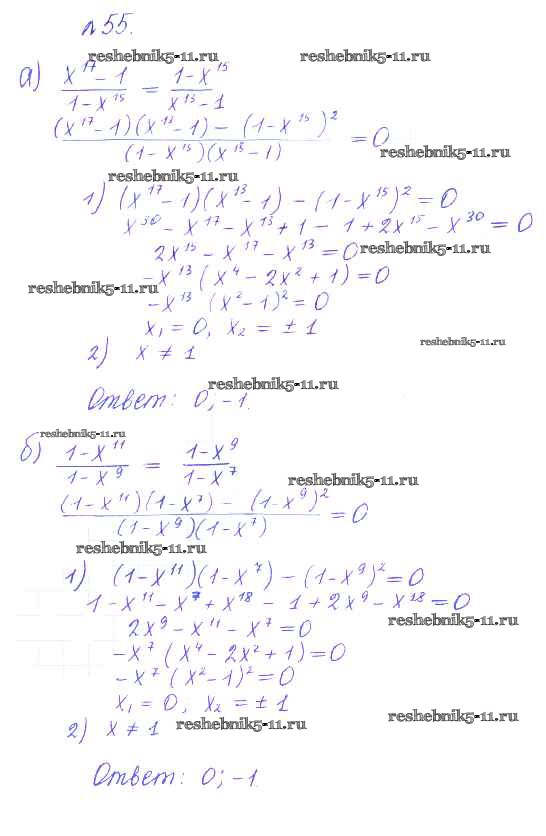 №55.
reshebnik5-11.ru reshebnik5-11.ru
а) (x¹⁷ - 1)/(1 - x¹⁵) = (1 - x¹⁵)/(x¹³ - 1)
((x¹⁷ - 1)(x¹³ - 1) - (1 - x¹⁵)²)/((1 - x¹⁵)(x¹³ - 1)) = 0
reshebnik5-11.ru
reshebnik5-11.ru
1) (x¹⁷ - 1)(x¹³ - 1) - (1 - x¹⁵)² = 0
x³⁰ - x¹⁷ - x¹³ + 1 - 1 + 2x¹⁵ - x³⁰ = 0
2x¹⁵ - x¹⁷ - x¹³ = 0 reshebnik5-11.ru
-x¹³ (x⁴ - 2x² + 1) = 0
reshebnik5-11.ru
-x¹³ (x² - 1)² = 0
x₁ = 0, x₂ = ± 1
reshebnik5-11.ru
2) x ≠ 1
reshebnik5-11.ru
Ответ: 0; -1.
reshebnik5-11.ru
б) (1 - x¹¹)/(1 - x⁹) = (1 - x⁹)/(1 - x⁷)
reshebnik5-11.ru
((1 - x¹¹)(1 - x⁷) - (1 - x⁹)²)/((1 - x⁹)(1 - x⁷)) = 0
reshebnik5-11.ru
1) (1 - x¹¹)(1 - x⁷) - (1 - x⁹)² = 0
1 - x¹¹ - x⁷ + x¹⁸ - 1 + 2x⁹ - x¹⁸ = 0
reshebnik5-11.ru
2x⁹ - x¹¹ - x⁷ = 0
-x⁷ (x⁴ - 2x² + 1) = 0
-x⁷ (x² - 1)² = 0
x₁ = 0, x₂ = ± 1
2) x ≠ 1 reshebnik5-11.ru reshebnik5-11.ru
Ответ: 0; -1.